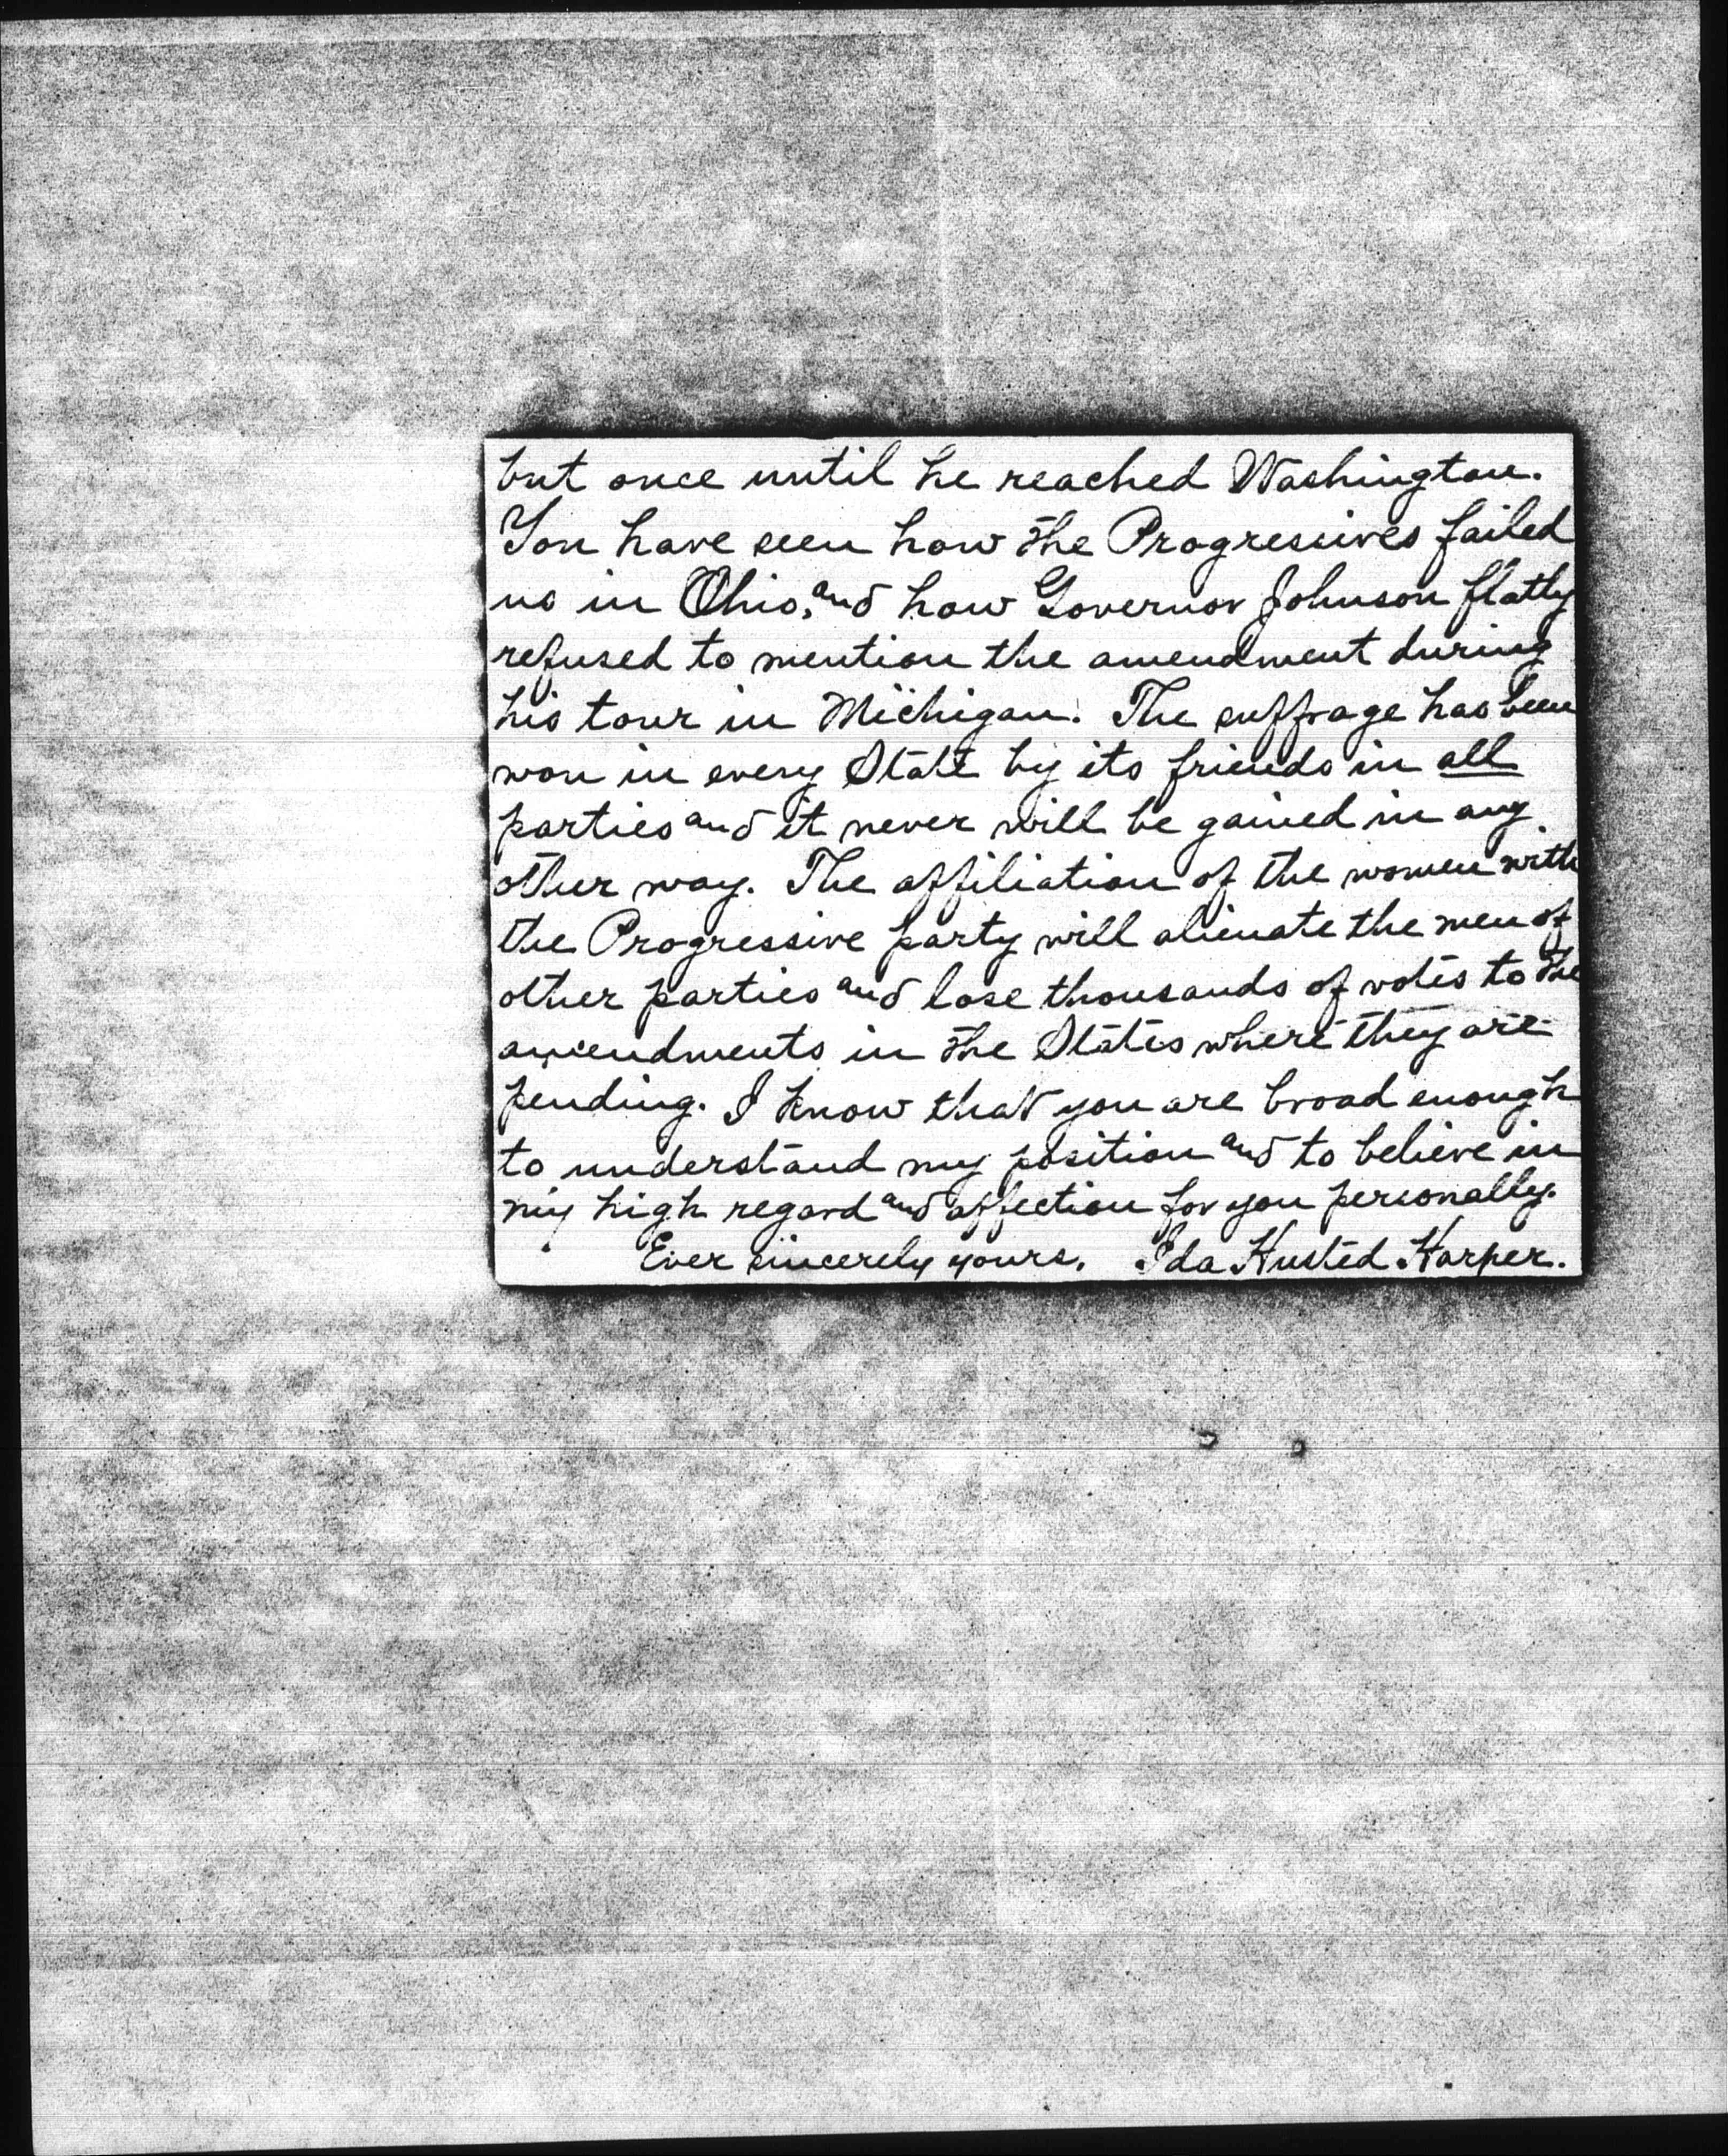 but once until he reached Washington.
You have seen how the Progressives failed
us in Ohio, and how Governor Johnson flatly
refused to mention the amendment during
his tour in Michigan. The suffrage has been
won in every State by its friends in all
parties and it never will be gained in any
other way. The affiliation of the women with
the Progressive party will alienate the men of
other parties and lose thousands of votes to the
amendments in the States where they are
pending. I know that you are broad enough
to understand my position and to believe in
my high regard and affection for you personally.
Ever sincerely yours, Ida Husted Harper.